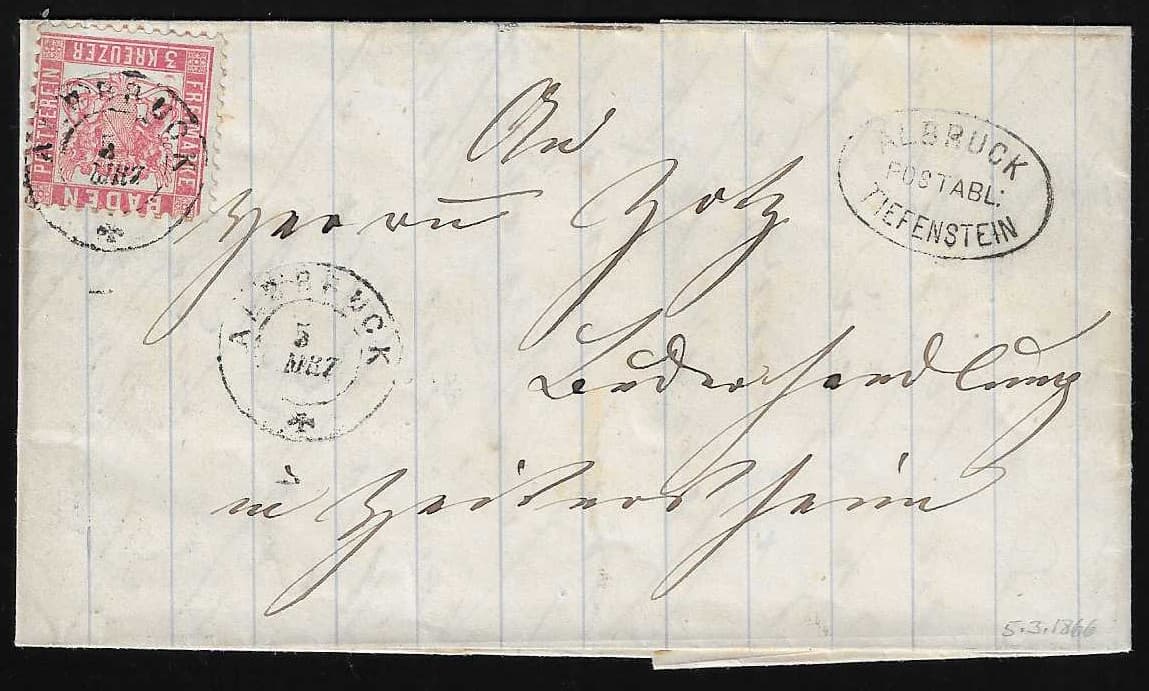 3 KREUZER
FREIMARKE
POSTVEREIN
BADEN
ALBBRUCK
5
MRZ
An
Herrn Zotz
ALBRUCK
POSTABL:
TIEFENSTEIN
ALBBRUCK
5
MRZ
Lederhandlung
in Heitersheim
5.3.1866